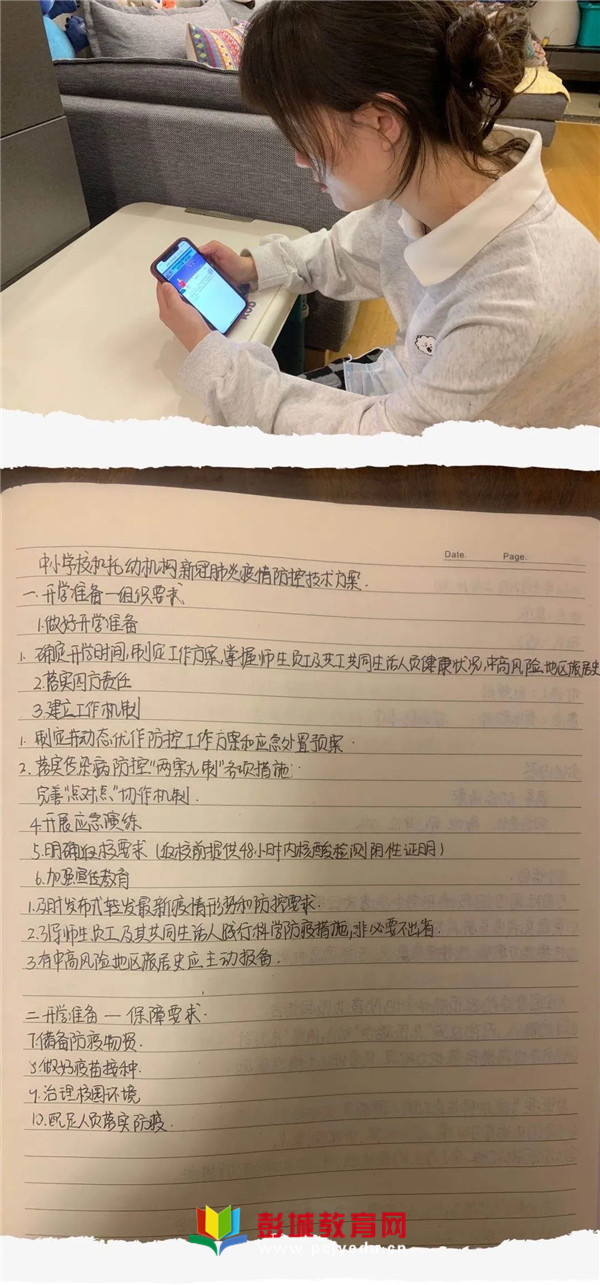 Date.
Page.
中小学校和托幼机构新冠肺炎疫情防控技术方案.
一.开学准备—组织要求
1.做好开学准备
1.确定开学时间,制定工作方案,掌握师生员工及其共同生活人员健康状况,中高风险地区旅居史
2.落实四方责任
3.建立工作机制
1.制定并动态优化防控工作方案和应急处置预案.
2.落实传染病防控"两案九制"各项措施.
完善"点对点"协作机制.
4.开展应急演练
5.明确返校要求(返校前提供48小时内核酸检测阴性证明)
6.加强宣传教育
1.及时发布或转发最新疫情形势和防护要求.
2.引导师生员工及其共同生活人践行科学防疫措施,非必要不出省.
3.有中高风险地区旅居史应主动报备.
二.开学准备—保障要求.
7.储备防疫物资.
8.做好疫苗接种.
9.治理校园环境
10.配足人员落实防疫.
彭城教育网
www.pcjyedu.cn